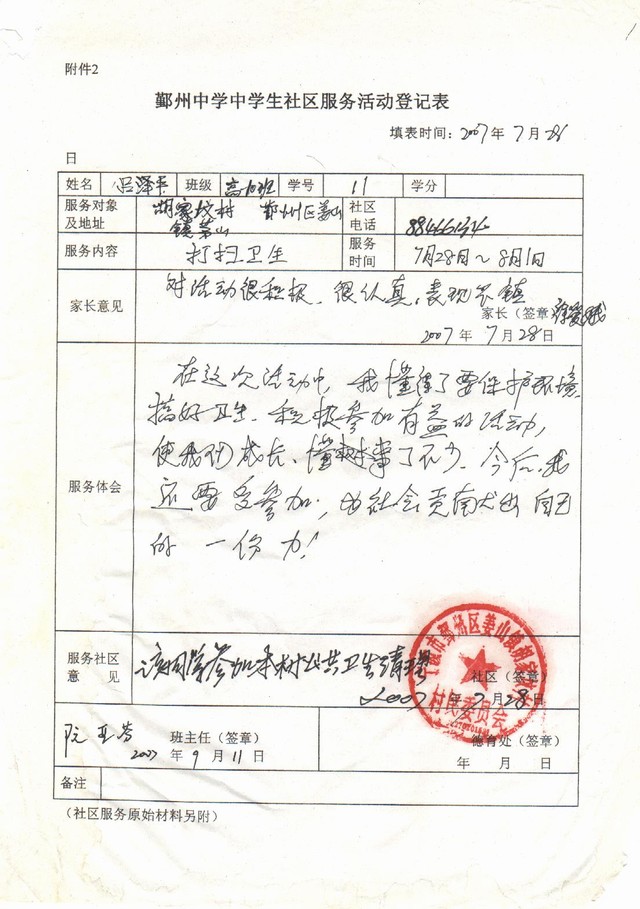 附件2
鄞州中学中学生社区服务活动登记表
填表时间：2007年7月28
日
姓名 吕泽平 班级 高10班 学号 11 学分
服务对象及地址 胡家坟村 鄞州区姜山镇茅山 社区电话
服务内容 打扫卫生 服务时间 7月28日～8月1日
对活动很积极、很认真，表现不错
家长意见 家长（签章）
2007年7月28日
在这次活动中，我懂得了要保护环境，
搞好卫生、积极参加有益的活动，
使我们成长、懂事了不少。今后，我
服务体会
还要多参加，为社会贡献出自己
的一份力！
服务社区意见 该同学参加本村公共卫生清理 社区（签章）
2007年7月28日
村民委员会
阮亚芬 班主任（签章） 德育处（签章）
2007年9月11日 年 月 日
备注
（社区服务原始材料另附）